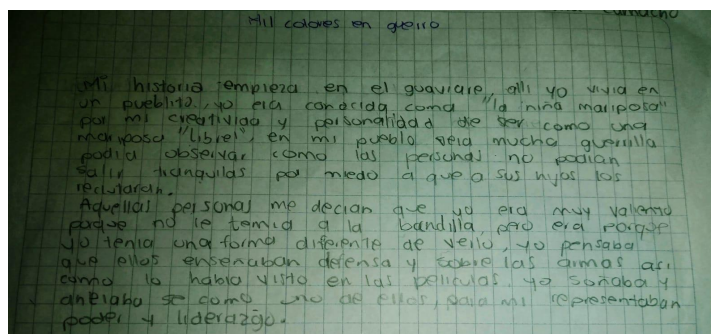 Camacho
Mil colores en guerra
Mi historia empieza en el guaviare, alli yo vivia en
un pueblito, yo era conocida como "la niña mariposa"
por mi creatividad y personalidad de ser como una
mariposa "libre", en mi pueblo veia mucha guerrilla
podia observar como las personas no podian
salir tranquilas por miedo a que a sus hijos los
reclutaran.
Aquellas personas me decian que yo era muy valiente
porque no le temia a la bandilla, pero era porque
yo tenia una forma diferente de verlo, yo pensaba
que ellos enseñaban defensa y sobre las armas asi
como lo habia visto en las peliculas, yo soñaba y
anelaba se como uno de ellos, para mi representaban
poder y liderazgo.